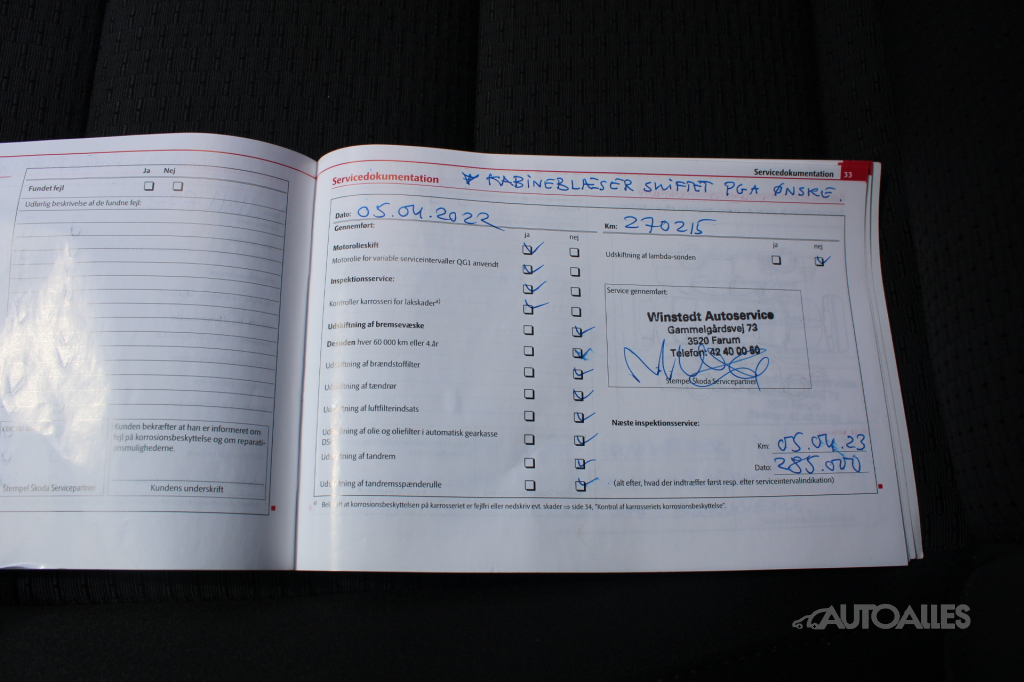 Ja Nej
Fundet fejl
Udførlig beskrivelse af de fundne fejl:
Kunden bekræfter at han er informeret om
fejl på korrosionsbeskyttelse og om reparati-
onsmulighederne.
Stempel Škoda Servicepartner
Kundens underskrift
Servicedokumentation
KABINEBLÆSER SKIFTET PGA ØNSKE.
Servicedokumentation 33
Dato: 05.04.2022
Gennemført:
ja nej
Motorolieskift
Motorolie for variable serviceintervaller QG1 anvendt
Inspektionsservice:
Kontroller karrosseri for lakskader a)
Udskiftning af bremsevæske
Desuden hver 60 000 km eller 4 år
Udskiftning af brændstoffilter
Udskiftning af tændrør
Udskiftning af luftfilterindsats
Udskiftning af olie og oliefilter i automatisk gearkasse
DSG
Udskiftning af tandrem
Udskiftning af tandremsspænderulle
Km: 270215
ja nej
Udskiftning af lambda-sonden
Service gennemført:
Winstedt Autoservice
Gammelgårdsvej 73
3520 Farum
Telefon: 42 40 00 60
Stempel Škoda Servicepartner
Næste inspektionsservice:
Km: 05.04.23
Dato: 285.000
(alt efter, hvad der indtræffer først resp. efter serviceintervalindikation)
a) Bekræft at korrosionsbeskyttelsen på karrosseriet er fejlfri eller nedskriv evt. skader ⇒ side 34, "Kontrol af karrosseriets korrosionsbeskyttelse".
AUTOALLES